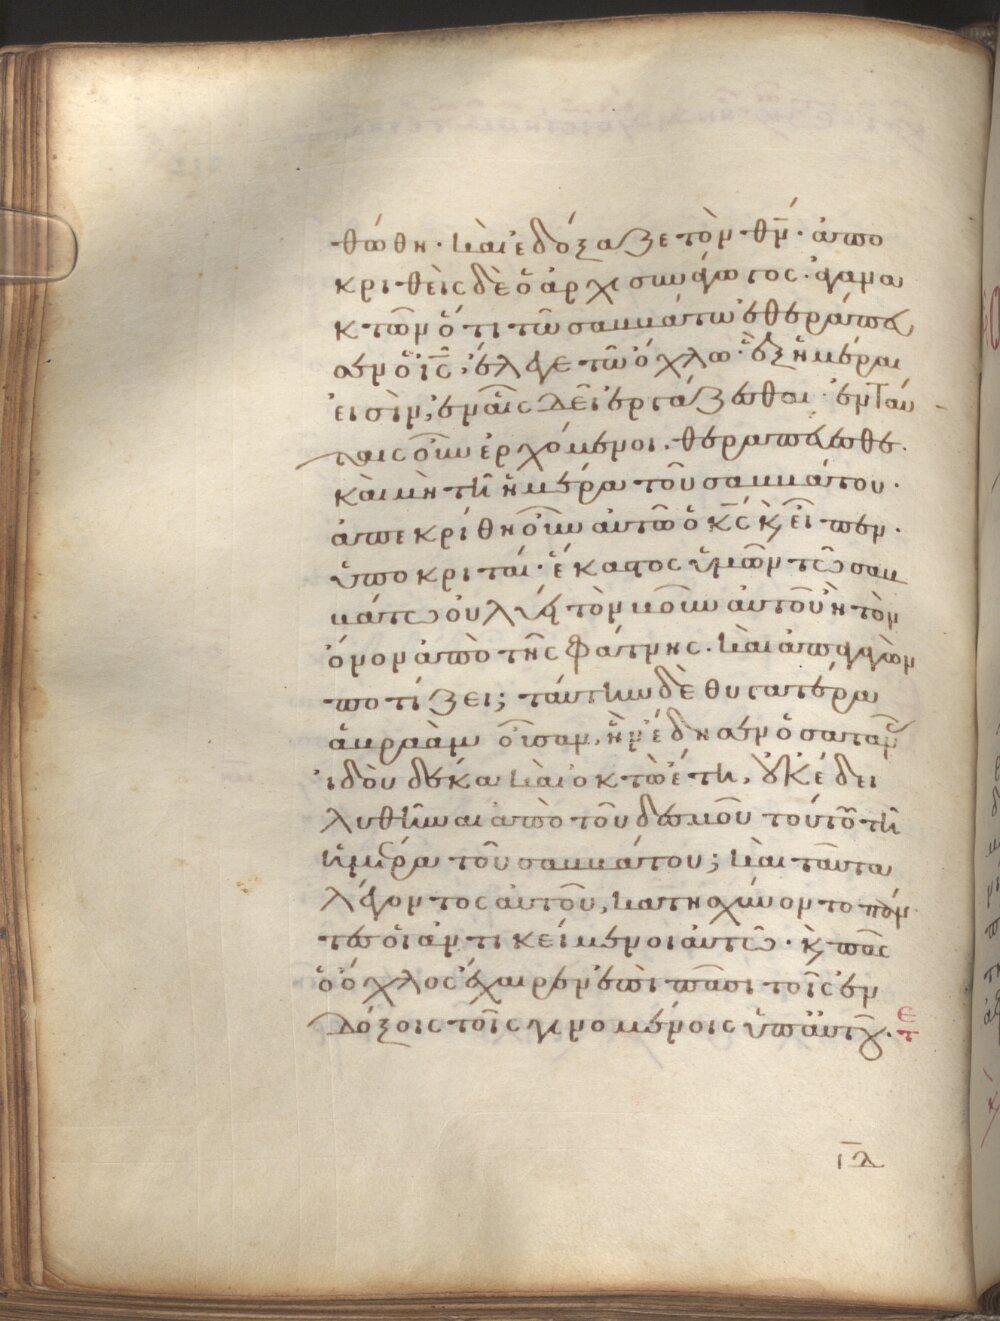 θώθη· καὶ ἐδόξαζε τὸν θν̄· ἀπο
κριθεὶς δὲ ὁ ἀρχισυνάγωγος· ἀγανα
κτῶν ὅτι τῶ σαββάτω ἐθεράπευ
σεν ὁ ις̄, ἔλεγε τῶ ὄχλω· ἓξ ἡμέραι
εἰσὶν, ἐν αἷς δεῖ ἐργάζεσθαι· ἐν ταύ
ταις οὖν ἐρχόμενοι. θεραπεύεσθε.
καὶ μὴ τῆ ἡμέρα τοῦ σαββάτου·
ἀπεκρίθη οὖν αὐτῶ ὁ κς̄ κ εἶπεν·
ὑποκριταί· ἕκαστος ὑμῶν τῶ σαβ
βάτω οὐ λύει τὸν βοῦν αὐτοῦ ἢ τὸν
ὄνον ἀπὸ τῆς φάτνης. καὶ ἀπαγαγὼν
ποτίζει; ταύτην δὲ θυγατέρα
ἀβραὰμ οὖσαν, ἣν ἔδησεν ὁ σατανᾶς
ἰδοὺ δέκα καὶ ὀκτὼ ἔτη, οὐκ ἔδει
λυθῆναι ἀπὸ τοῦ δεσμοῦ τούτου τῆ
ἡμέρα τοῦ σαββάτου; καὶ ταῦτα
λέγοντος αὐτοῦ, κατησχύνοντο πάν
τες οἱ ἀντικείμενοι αὐτῶ· κ πᾶς
ὁ ὄχλος ἔχαιρεν ἐπὶ πᾶσι τοῖς ἐν
δόξοις τοῖς γινομένοις ὑπ αὐτοῦ.